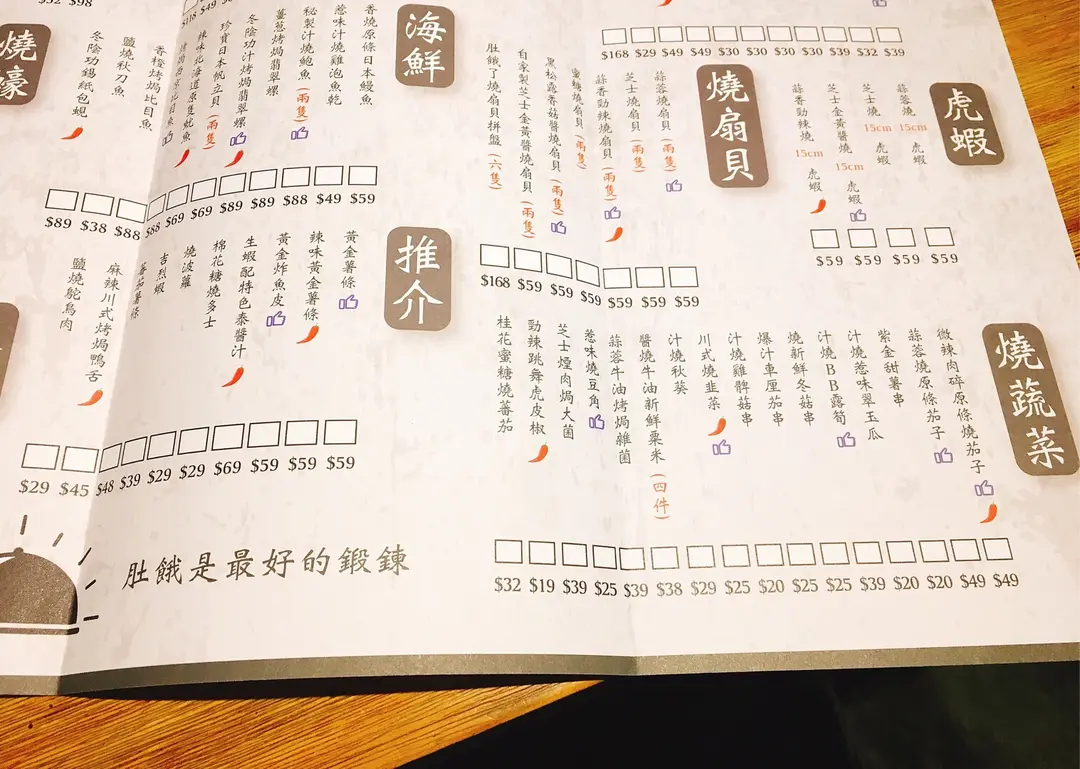 $168 $29 $49 $49 $30 $30 $30 $30 $39 $32 $39
虎蝦
蒜蓉燒15cm虎蝦
芝士燒15cm虎蝦
芝士金黃醬燒15cm虎蝦
蒜香勁辣燒15cm虎蝦
$59 $59 $59 $59
燒扇貝
蒜蓉燒扇貝(兩隻)
芝士燒扇貝(兩隻)
蒜香勁辣燒扇貝(兩隻)
蜜糖燒扇貝(兩隻)
黑松露香菇醬燒扇貝(兩隻)
自家製芝士金黃醬燒扇貝(兩隻)
肚餓了燒扇貝拼盤(六隻)
$168 $59 $59 $59 $59 $59 $59
燒蔬菜
微辣肉碎原條燒茄子
蒜蓉燒原條茄子
紫金甜薯串
汁燒惹味翠玉瓜
汁燒BB露筍
燒新鮮冬菇串
爆汁車厘茄串
汁燒雞髀菇串
川式燒韭菜
汁燒秋葵
醬燒牛油新鮮粟米(四件)
蒜蓉牛油烤焗雜菌
惹味燒豆角
芝士煙肉焗大菌
勁辣跳舞虎皮椒
桂花蜜糖燒蕃茄
$32 $19 $39 $25 $39 $38 $29 $25 $20 $25 $25 $39 $20 $20 $49 $49
$118 $49
海鮮
香燒原條日本鰻魚
惹味汁燒雞泡魚乾
秘製汁燒鮑魚(兩隻)
薑蔥烤焗翡翠螺
冬陰功汁烤焗翡翠螺
珍寶日本帆立貝(兩隻)
辣味北海道原隻魷魚
比目魚
香橙烤焗比目魚
鹽燒秋刀魚
冬陰功錫紙包蜆
$89 $38 $88 $88 $69 $69 $89 $89 $88 $49 $59
推介
黃金薯條
辣味黃金薯條
黃金炸魚皮
生蝦配特色泰醬汁
棉花糖燒多士
燒波蘿
吉烈蝦
蕃茄薯條
麻辣川式烤焗鴨舌
鹽燒鴕鳥肉
$29 $45 $48 $39 $29 $29 $69 $59 $59 $59
$98
燒蠔
肚餓是最好的鍛鍊